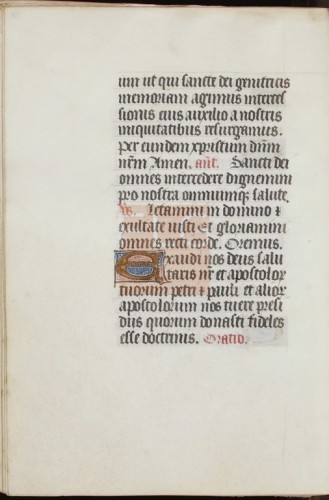 um ut qui sancte dei genitricis
memoriam agimus interces
sionis eius auxilio a nostris
iniquitatibus resurgamus.
Per eundem xpristum dnm
nrm Amen. ant. Sancti dei
omnes intercedere dignemini
pro nostra omniumque salute
vs. Letamini in domino et
exultate iusti Et gloriamini
omnes recti corde. Oremus.
Exaudi nos deus salu
taris nr et apostolor
tuorum petri et pauli et alior
apostolorum nos tuere presi
diis quorum donasti fideles
esse doctrinis. Oratio.